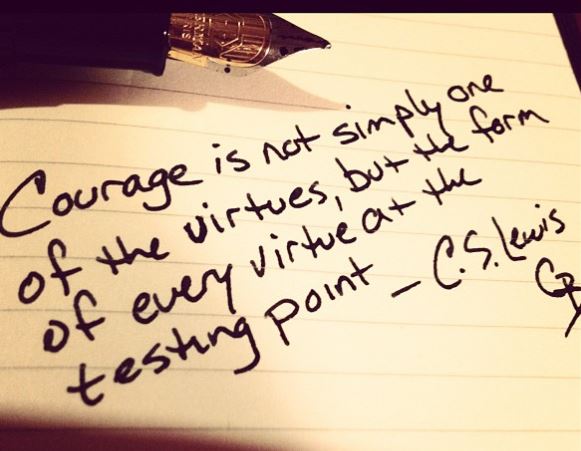 Courage is not simply one
of the virtues, but the form
of every virtue at the
testing point – C.S. Lewis